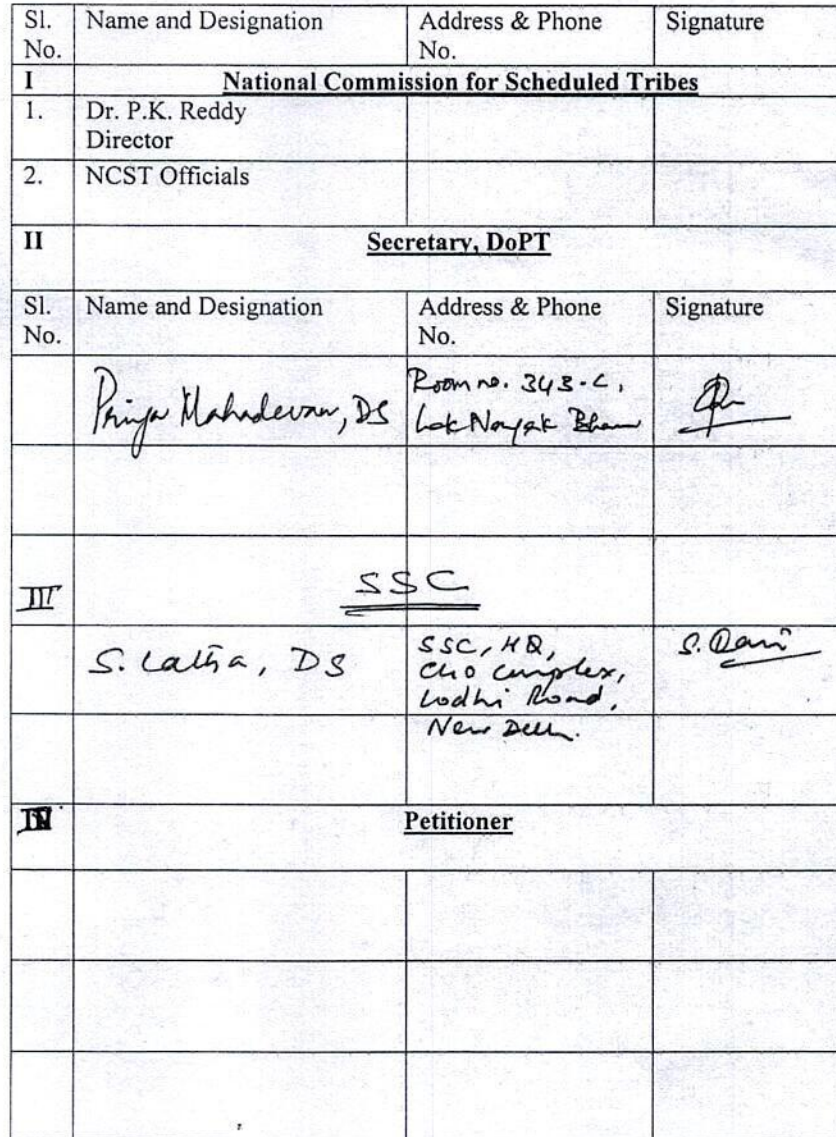 Sl. No. Name and Designation Address & Phone No. Signature
I National Commission for Scheduled Tribes
1. Dr. P.K. Reddy
Director
2. NCST Officials
II Secretary, DoPT
Sl. No. Name and Designation Address & Phone No. Signature
Priya Mahadevan, DS
Room no. 343-C,
Lok Nayak Bhawan
III SSC
S. Latha, DS
SSC, HQ,
CGO Complex,
Lodhi Road,
New Delhi.
IV Petitioner